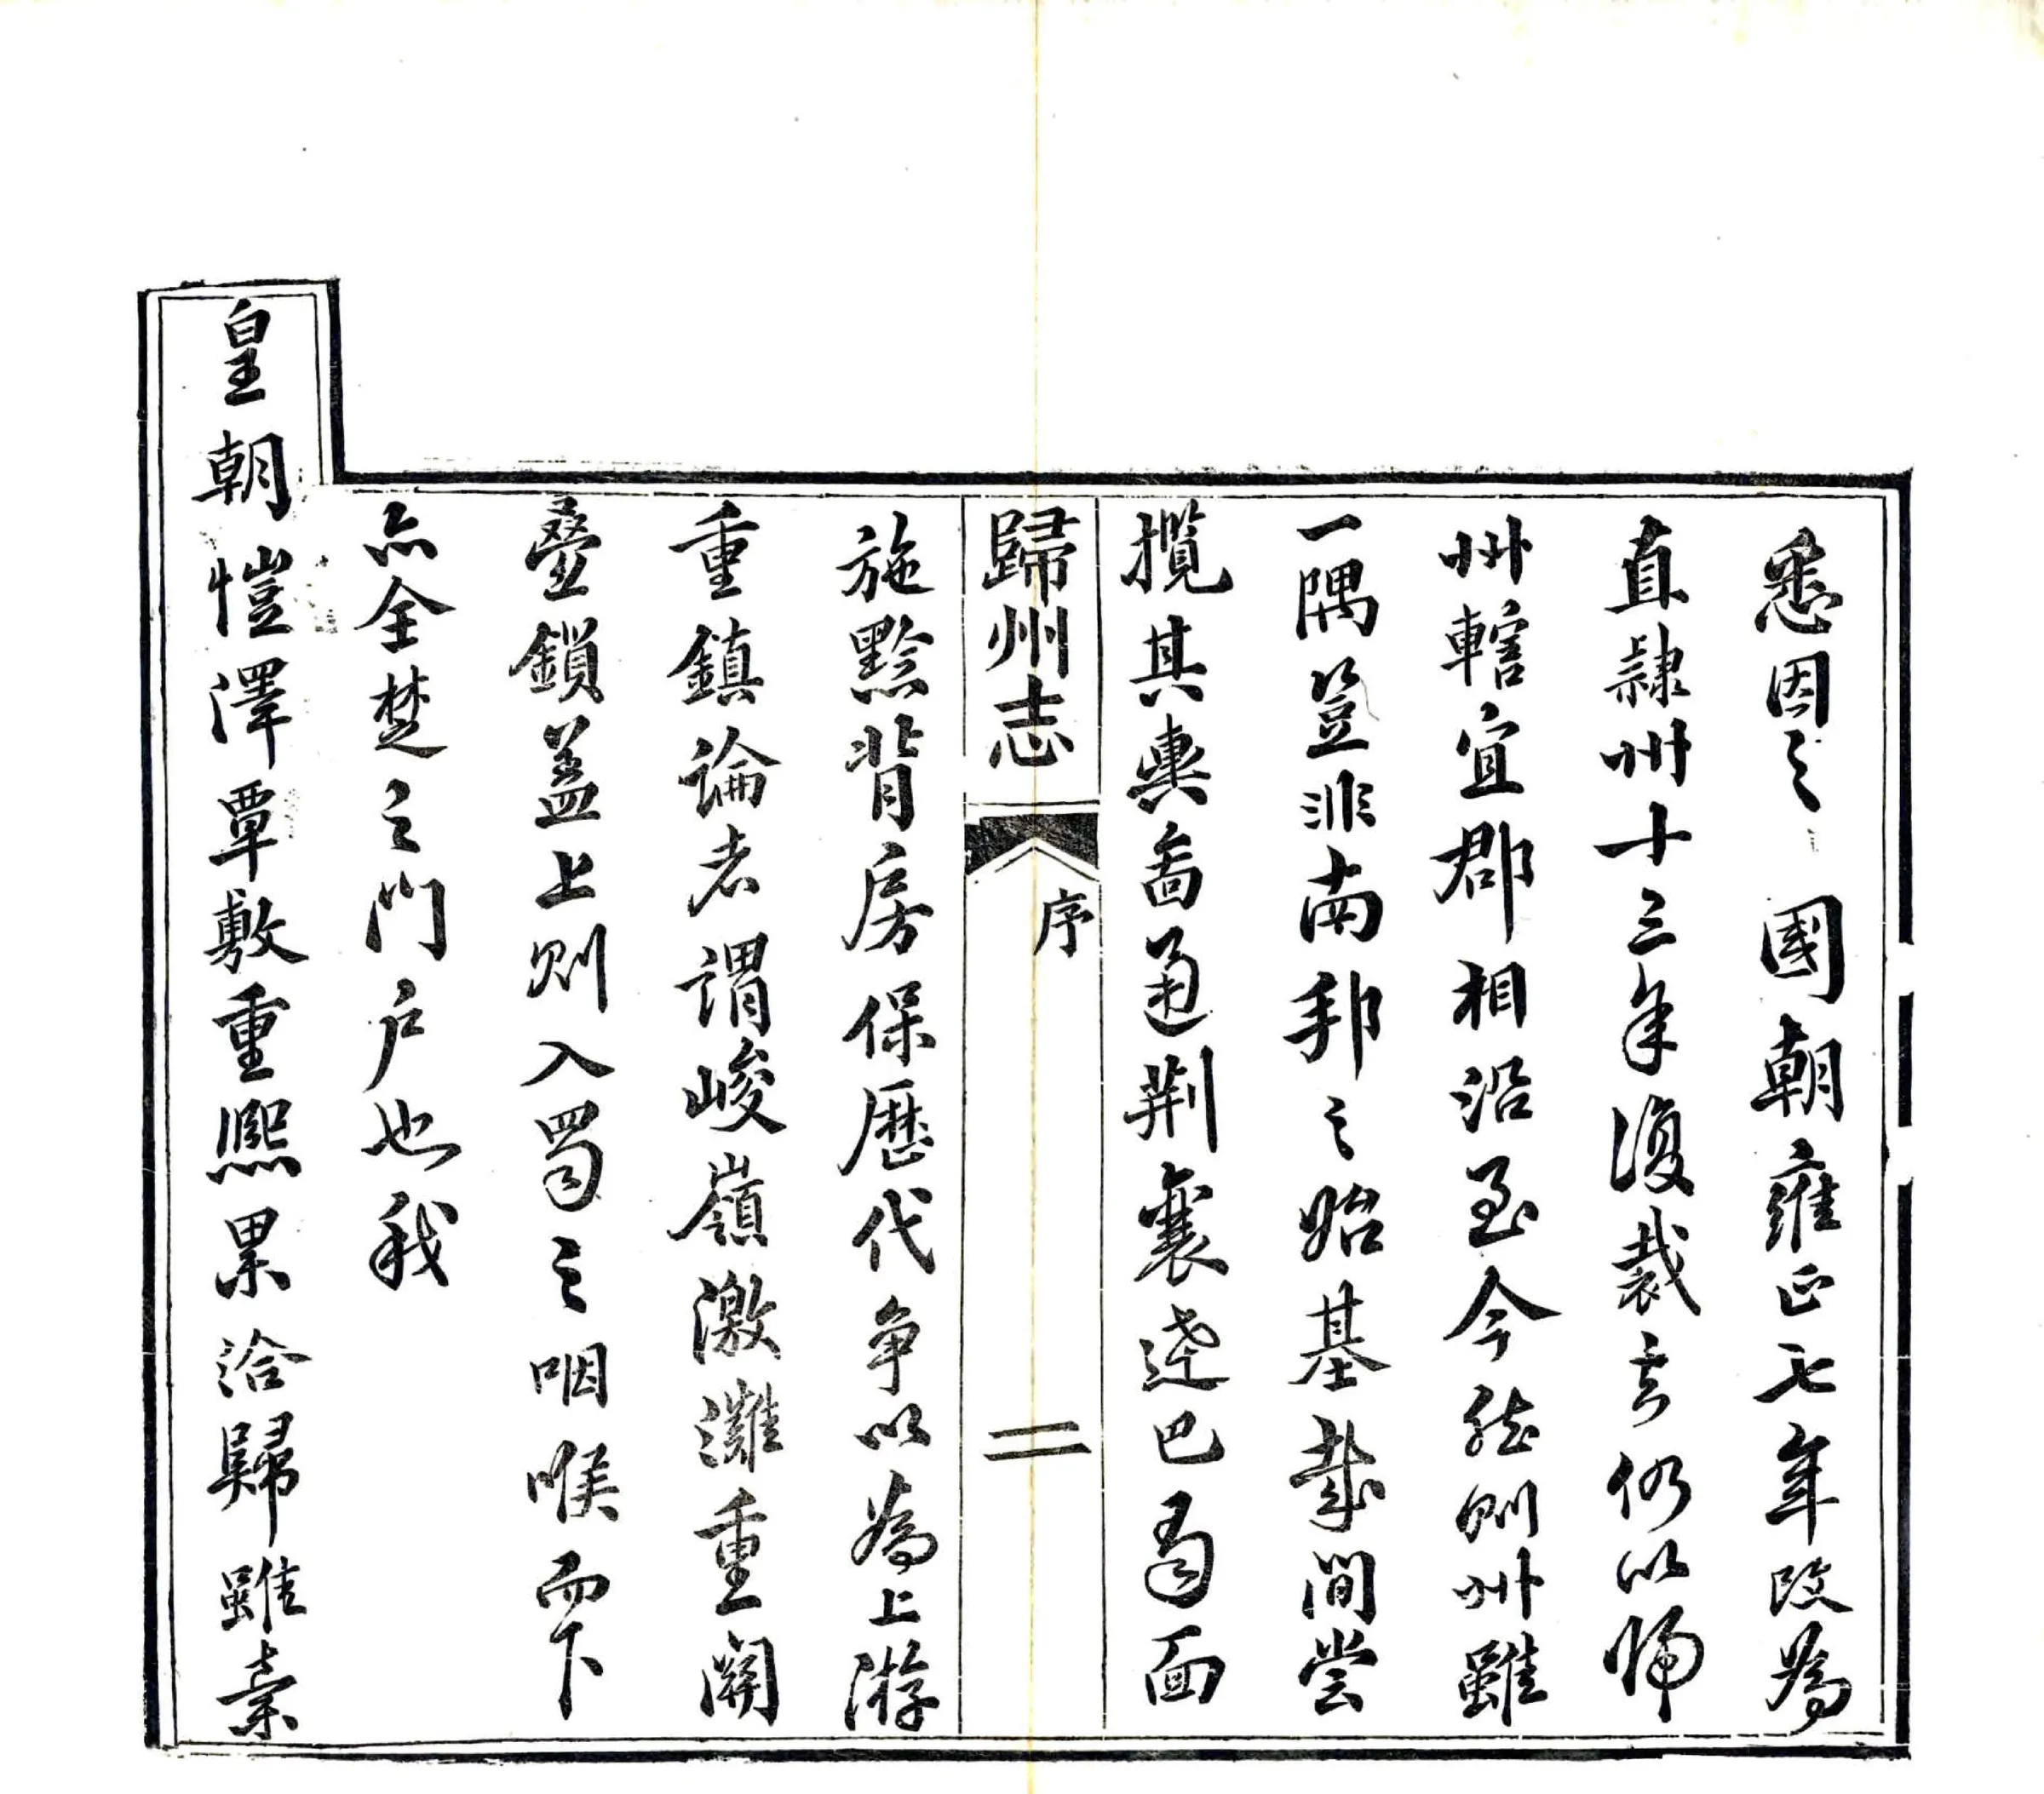 悉因之 國朝雍正七年改為
直隸州十三年復裁去仍以歸
州轄宜郡相沿至今然則州雖
一隅豈非南邦之始基哉間嘗
攬其輿啚通荆襄遶巴蜀面
歸州志 序 二
施黔背房保歷代爭以為上游
重鎮論者謂峻嶺激灘重關
疊鎖蓋上則入蜀之咽喉而下
亦全楚之門户也我
皇朝愷澤覃敷重熙累洽歸雖素